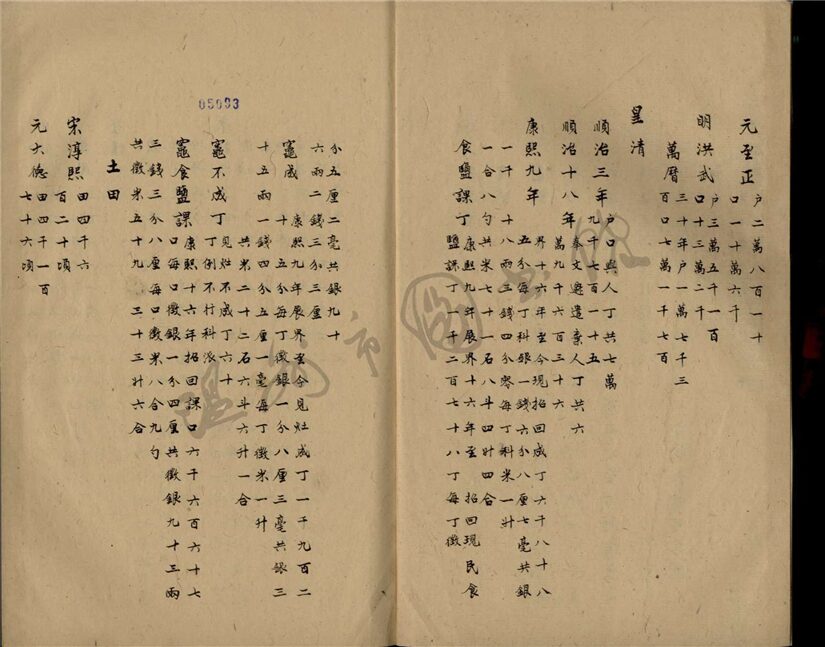 元至正
戶二萬八百一十
口一十萬六千
明洪武
戶三萬五千一百
口十三萬二千
萬曆
三十年戶一萬七千三
百口七萬一千七百
皇清
順治三年
戶口與人丁共七萬
九千七百一十五
順治十八年
奉文遷遣棄人丁共六
萬九千六百三十六
康熙九年
界十六年至今現招回成丁六千八十八
五分每丁科銀一錢六分八厘七毫共銀
一千一十八兩三錢四分零每丁科米一升
一合八勺共米七十一石八斗四升四合
食鹽課丁
康熙九年展界十六年至招回現民食
鹽課丁一千二百七十八丁每丁徵
05093
分五厘二毫共銀九十
六兩二錢三分三厘
竈成
康熙九年展界至今見灶成丁一千九百二
十五分每丁徵銀一分八厘三毫共銀三
十五兩一錢四分五厘一毫每丁徵米一升
共米二十二石六斗六升一合
竈不成丁
見灶不成丁六十
丁例不行科派
竈食鹽課
康熙十六年招回課口六千六百六十七
口每口徵銀一分四厘共徵銀九十三兩
三錢三分八厘每口徵米八合九勺
共徵米五十九石三斗三升六合
土田
宋淳熙
田四千六
百二十頃
元大德
田四千一百
七十六頃